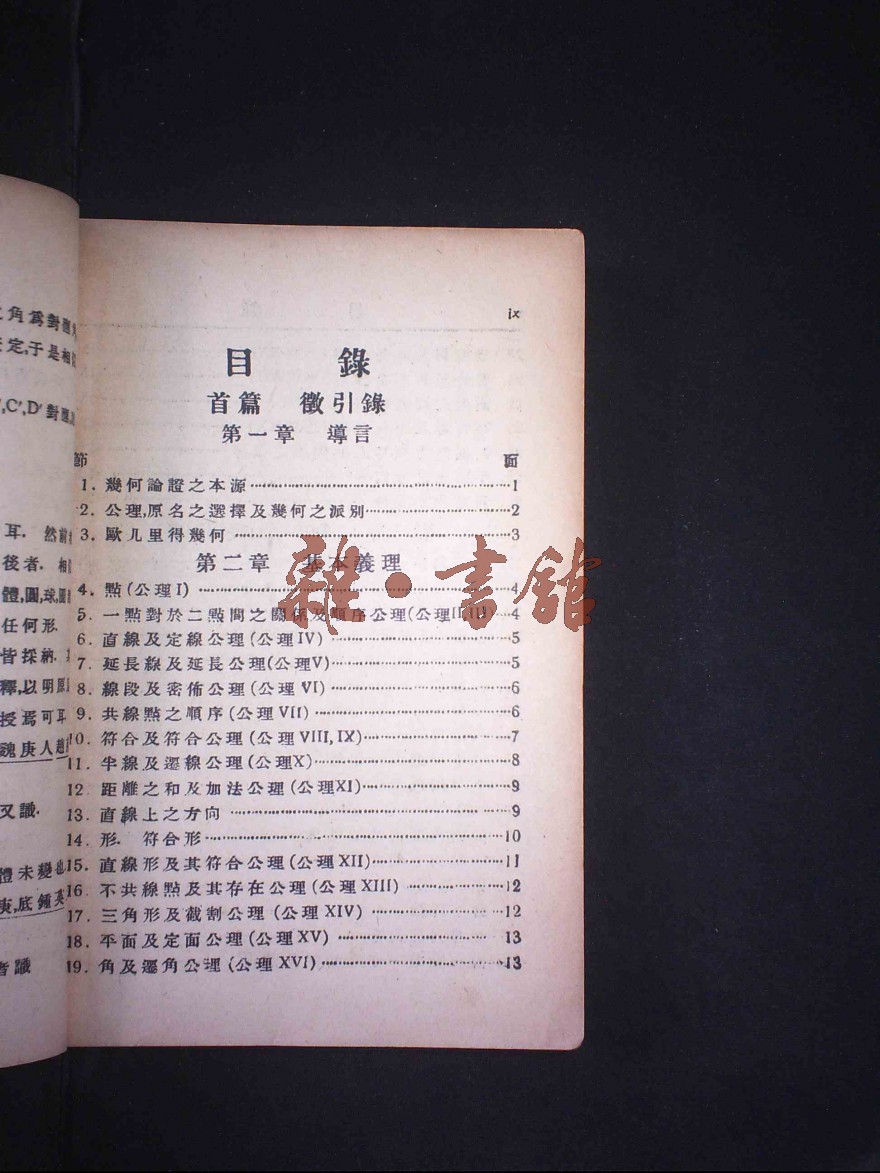 角爲對應
定,于是相
',C',D' 對應
耳. 然前
後者. 相
體,圓,球,圓
任何形.
皆採納.
釋,以明原
授焉可耳
魏庚人趙
又識.
體未變也
庚,底鍾英
識
ix
目 錄
首篇 徵引錄
第一章 導言
節 面
1. 幾何論證之本源 1
2. 公理,原名之選擇及幾何之派別 2
3. 歐几里得幾何 3
第二章 基本義理
4. 點(公理I) 4
5. 一點對於二點間之關係及順序公理(公理II,III) 4
6. 直線及定線公理(公理IV) 5
7. 延長線及延長公理(公理V) 5
8. 線段及密佈公理(公理 VI) 6
9. 共線點之順序(公理VII) 6
10. 符合及符合公理(公理 VIII, IX) 7
11. 半線及遷線公理(公理X) 8
12. 距離之和及加法公理(公理XI) 9
13. 直線上之方向 9
14. 形. 符合形 10
15. 直線形及其符合公理(公理XII) 11
16. 不共線點及其存在公理(公理XIII) 12
17. 三角形及截割公理 (公理 XIV) 12
18. 平面及定面公理(公理XV) 13
19. 角及遷角公理(公理 XVI) 13
雜·書館